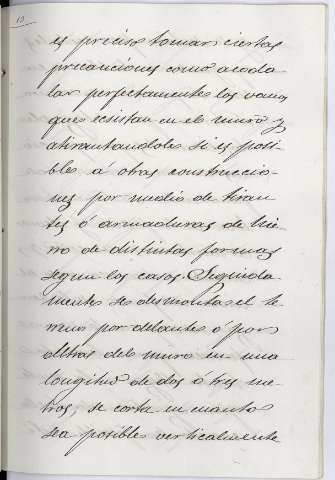 10
es preciso tomar ciertas
precauciones como acoda-
lar perfectamente los vanos
que existan en el muro y
atirantandole si es posi-
bles á otras construccio-
nes por medio de tiran-
tes ó armaduras de hie-
rro de distintas formas
segun los casos. Seguida-
mente se desmonta el te-
rreno por delante ó por
detras del muro en una
longitud de dos ó tres me-
tros, se corta en cuanto
sea posible verticalmente